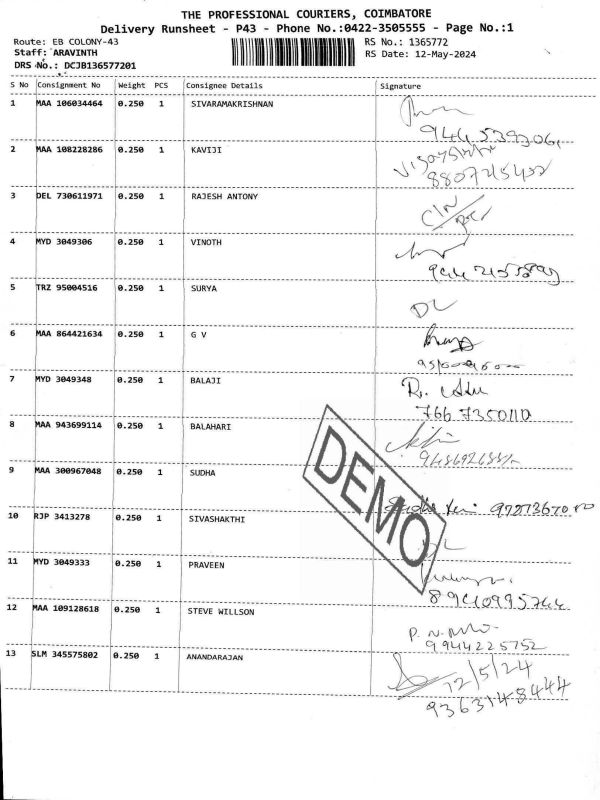 THE PROFESSIONAL COURIERS, COIMBATORE
Delivery Runsheet - P43 - Phone No.:0422-3505555 - Page No.:1
Route: EB COLONY-43 RS No.: 1365772
Staff: ARAVINTH RS Date: 12-May-2024
DRS No.: DCJB136577201
S No Consignment No Weight PCS Consignee Details Signature
1 MAA 106034464 0.250 1 SIVARAMAKRISHNAN
2 MAA 108228286 0.250 1 KAVIJI
3 DEL 730611971 0.250 1 RAJESH ANTONY
4 MYD 3049306 0.250 1 VINOTH
5 TRZ 95004516 0.250 1 SURYA
DL
6 MAA 864421634 0.250 1 G V
7 MYD 3049348 0.250 1 BALAJI
766 7350110
8 MAA 943699114 0.250 1 BALAHARI
9 MAA 300967048 0.250 1 SUDHA
10 RJP 3413278 0.250 1 SIVASHAKTHI
DEMO
11 MYD 3049333 0.250 1 PRAVEEN
12 MAA 109128618 0.250 1 STEVE WILLSON
9944225752
13 SLM 345575802 0.250 1 ANANDARAJAN
12/5/24
9363148444